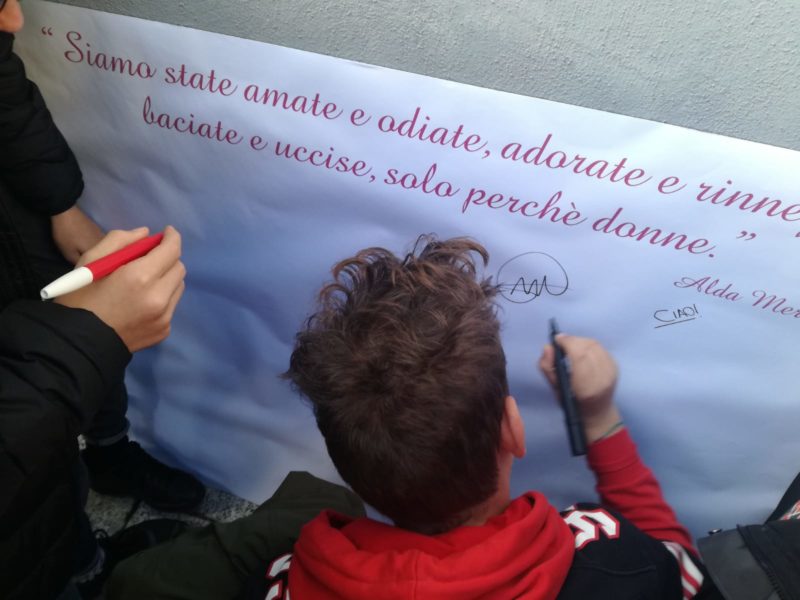 “ Siamo state amate e odiate, adorate e rinne
baciate e uccise, solo perchè donne. ”
Alda Mer
CIAO!